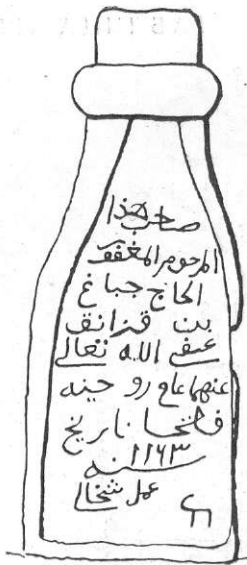 صاحب هذا
المرحوم المغفور
الحاج جباغ
بن قزانق
عفى الله تعالى
عنهما روحينه
فاتحا تاريخ
سنه ١١٦٣
عمل شخالى